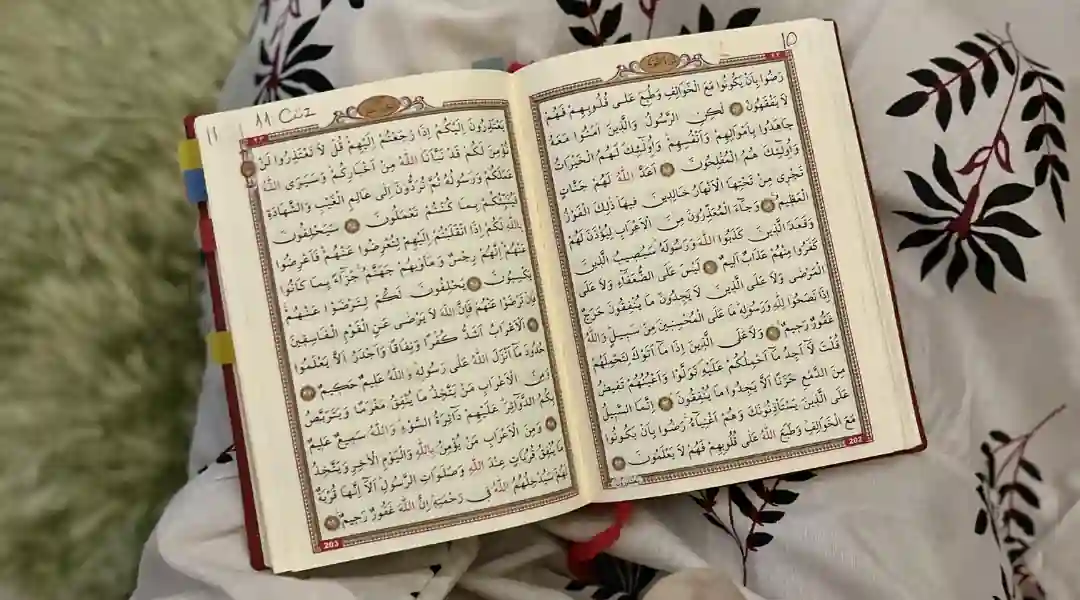 10
رَضُوا بِاَنْ يَكُونُوا مَعَ الْخَوَالِفِ وَطُبِعَ عَلٰى قُلُوبِهِمْ فَهُمْ
لَا يَفْقَهُونَ لٰكِنِ الرَّسُولُ وَالَّذِينَ اٰمَنُوا مَعَهُ
جَاهَدُوا بِاَمْوَالِهِمْ وَاَنْفُسِهِمْ وَاُولٰٓئِكَ لَهُمُ الْخَيْرَاتُ
وَاُولٰٓئِكَ هُمُ الْمُفْلِحُونَ اَعَدَّ اللّٰهُ لَهُمْ جَنَّاتٍ
تَجْرِي مِنْ تَحْتِهَا الْاَنْهَارُ خَالِدِينَ فِيهَا ذٰلِكَ الْفَوْزُ
الْعَظِيمُ وَجَآءَ الْمُعَذِّرُونَ مِنَ الْاَعْرَابِ لِيُؤْذَنَ لَهُمْ
وَقَعَدَ الَّذِينَ كَذَبُوا اللّٰهَ وَرَسُولَهُ سَيُصِيبُ الَّذِينَ
كَفَرُوا مِنْهُمْ عَذَابٌ اَلِيمٌ لَيْسَ عَلَى الضُّعَفَآءِ وَلَا عَلَى
الْمَرْضٰى وَلَا عَلَى الَّذِينَ لَا يَجِدُونَ مَا يُنْفِقُونَ حَرَجٌ
اِذَا نَصَحُوا لِلّٰهِ وَرَسُولِهِ مَا عَلَى الْمُحْسِنِينَ مِنْ سَبِيلٍ وَاللّٰهُ
غَفُورٌ رَحِيمٌ وَلَا عَلَى الَّذِينَ اِذَا مَٓا اَتَوْكَ لِتَحْمِلَهُمْ
قُلْتَ لَٓا اَجِدُ مَٓا اَحْمِلُكُمْ عَلَيْهِ تَوَلَّوْا وَاَعْيُنُهُمْ تَفِيضُ
مِنَ الدَّمْعِ حَزَنًا اَلَّا يَجِدُوا مَا يُنْفِقُونَ اِنَّمَا السَّبِيلُ
عَلَى الَّذِينَ يَسْتَأْذِنُونَكَ وَهُمْ اَغْنِيَآءُ رَضُوا بِاَنْ يَكُونُوا
مَعَ الْخَوَالِفِ وَطَبَعَ اللّٰهُ عَلٰى قُلُوبِهِمْ فَهُمْ لَا يَعْلَمُونَ
202
11
11 CÜZ
يَعْتَذِرُونَ اِلَيْكُمْ اِذَا رَجَعْتُمْ اِلَيْهِمْ قُلْ لَا تَعْتَذِرُوا لَنْ
نُؤْمِنَ لَكُمْ قَدْ نَبَّاَنَا اللّٰهُ مِنْ اَخْبَارِكُمْ وَسَيَرَى اللّٰهُ
عَمَلَكُمْ وَرَسُولُهُ ثُمَّ تُرَدُّونَ اِلٰى عَالِمِ الْغَيْبِ وَالشَّهَادَةِ
فَيُنَبِّئُكُمْ بِمَا كُنْتُمْ تَعْمَلُونَ سَيَحْلِفُونَ
بِاللّٰهِ لَكُمْ اِذَا انْقَلَبْتُمْ اِلَيْهِمْ لِتُعْرِضُوا عَنْهُمْ فَاَعْرِضُوا
عَنْهُمْ اِنَّهُمْ رِجْسٌ وَمَأْوٰيهُمْ جَهَنَّمُ جَزَآءً بِمَا كَانُوا
يَكْسِبُونَ يَحْلِفُونَ لَكُمْ لِتَرْضَوْا عَنْهُمْ
فَاِنْ تَرْضَوْا عَنْهُمْ فَاِنَّ اللّٰهَ لَا يَرْضٰى عَنِ الْقَوْمِ الْفَاسِقِينَ
اَلْاَعْرَابُ اَشَدُّ كُفْرًا وَنِفَاقًا وَاَجْدَرُ اَلَّا يَعْلَمُوا
حُدُودَ مَٓا اَنْزَلَ اللّٰهُ عَلٰى رَسُولِهِ وَاللّٰهُ عَلِيمٌ حَكِيمٌ
وَمِنَ الْاَعْرَابِ مَنْ يَتَّخِذُ مَا يُنْفِقُ مَغْرَمًا وَيَتَرَبَّصُ
بِكُمُ الدَّوَآئِرَ عَلَيْهِمْ دَآئِرَةُ السَّوْءِ وَاللّٰهُ سَمِيعٌ عَلِيمٌ
وَمِنَ الْاَعْرَابِ مَنْ يُؤْمِنُ بِاللّٰهِ وَالْيَوْمِ الْاٰخِرِ وَيَتَّخِذُ
مَا يُنْفِقُ قُرُبَاتٍ عِنْدَ اللّٰهِ وَصَلَوَاتِ الرَّسُولِ اَلَٓا اِنَّهَا قُرْبَةٌ
لَهُمْ سَيُدْخِلُهُمُ اللّٰهُ فِي رَحْمَتِهِ اِنَّ اللّٰهَ غَفُورٌ رَحِيمٌ
203